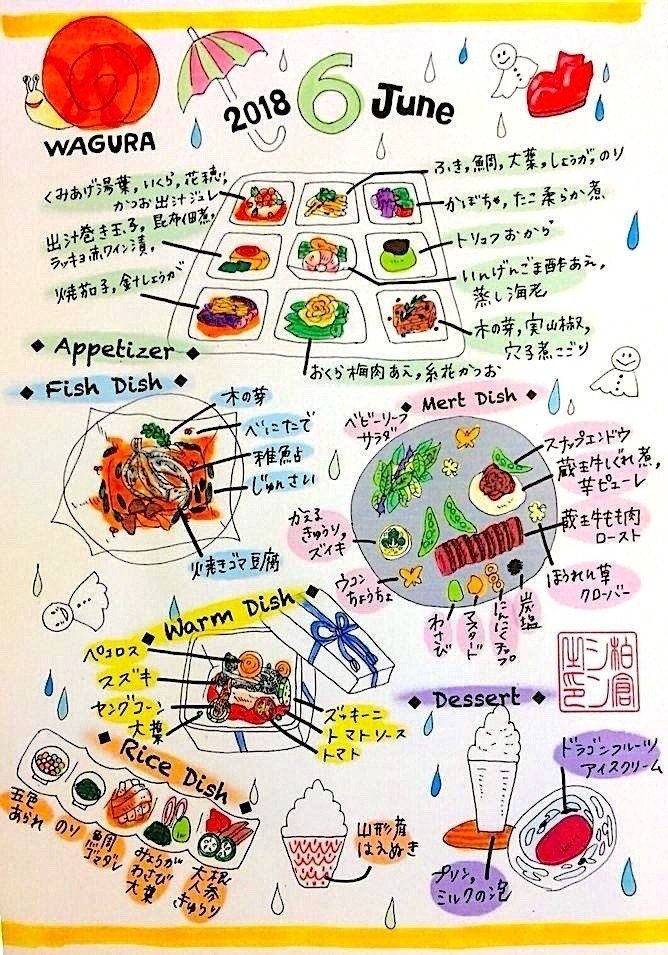 WAGURA
2018 6 June
くみあげ湯葉,いくら,花穂,
かつお出汁ジュレ
出汁巻き玉子,昆布佃煮,
ラッキョ赤ワイン漬,
焼茄子,針しょうが
ふき,鯛,大葉,しょうが,のり
かぼちゃ,たこ柔らか煮
トリュフおから
いんげんごま酢あえ,
蒸し海老
木の芽,実山椒,
穴子煮こごり
おくら梅肉あえ,糸花かつお
Appetizer
Fish Dish
木の芽
べにたで
稚鮎
じゅんさい
焼きゴマ豆腐
Mert Dish
ベビーリーフ
サラダ
スナップエンドウ
蔵王牛しぐれ煮,
芋ピューレ
蔵王牛もも肉
ロースト
ほうれん草
クローバー
かえる
きゅうり,
ズイキ
ウコン
ちょうちょ
わさび
マスタード
にんにくチップ
炭塩
Warm Dish
ペコロス
スズキ
ヤングコーン
大葉
ズッキーニ
トマトソース
トマト
Rice Dish
五色
あられ
のり
鯛
ゴマダレ
みょうが
わさび
大葉
大根
人参
きゅうり
山形産
はえぬき
Dessert
ドラゴンフルーツ
アイスクリーム
プリン,
ミルクの泡
柏倉
シン